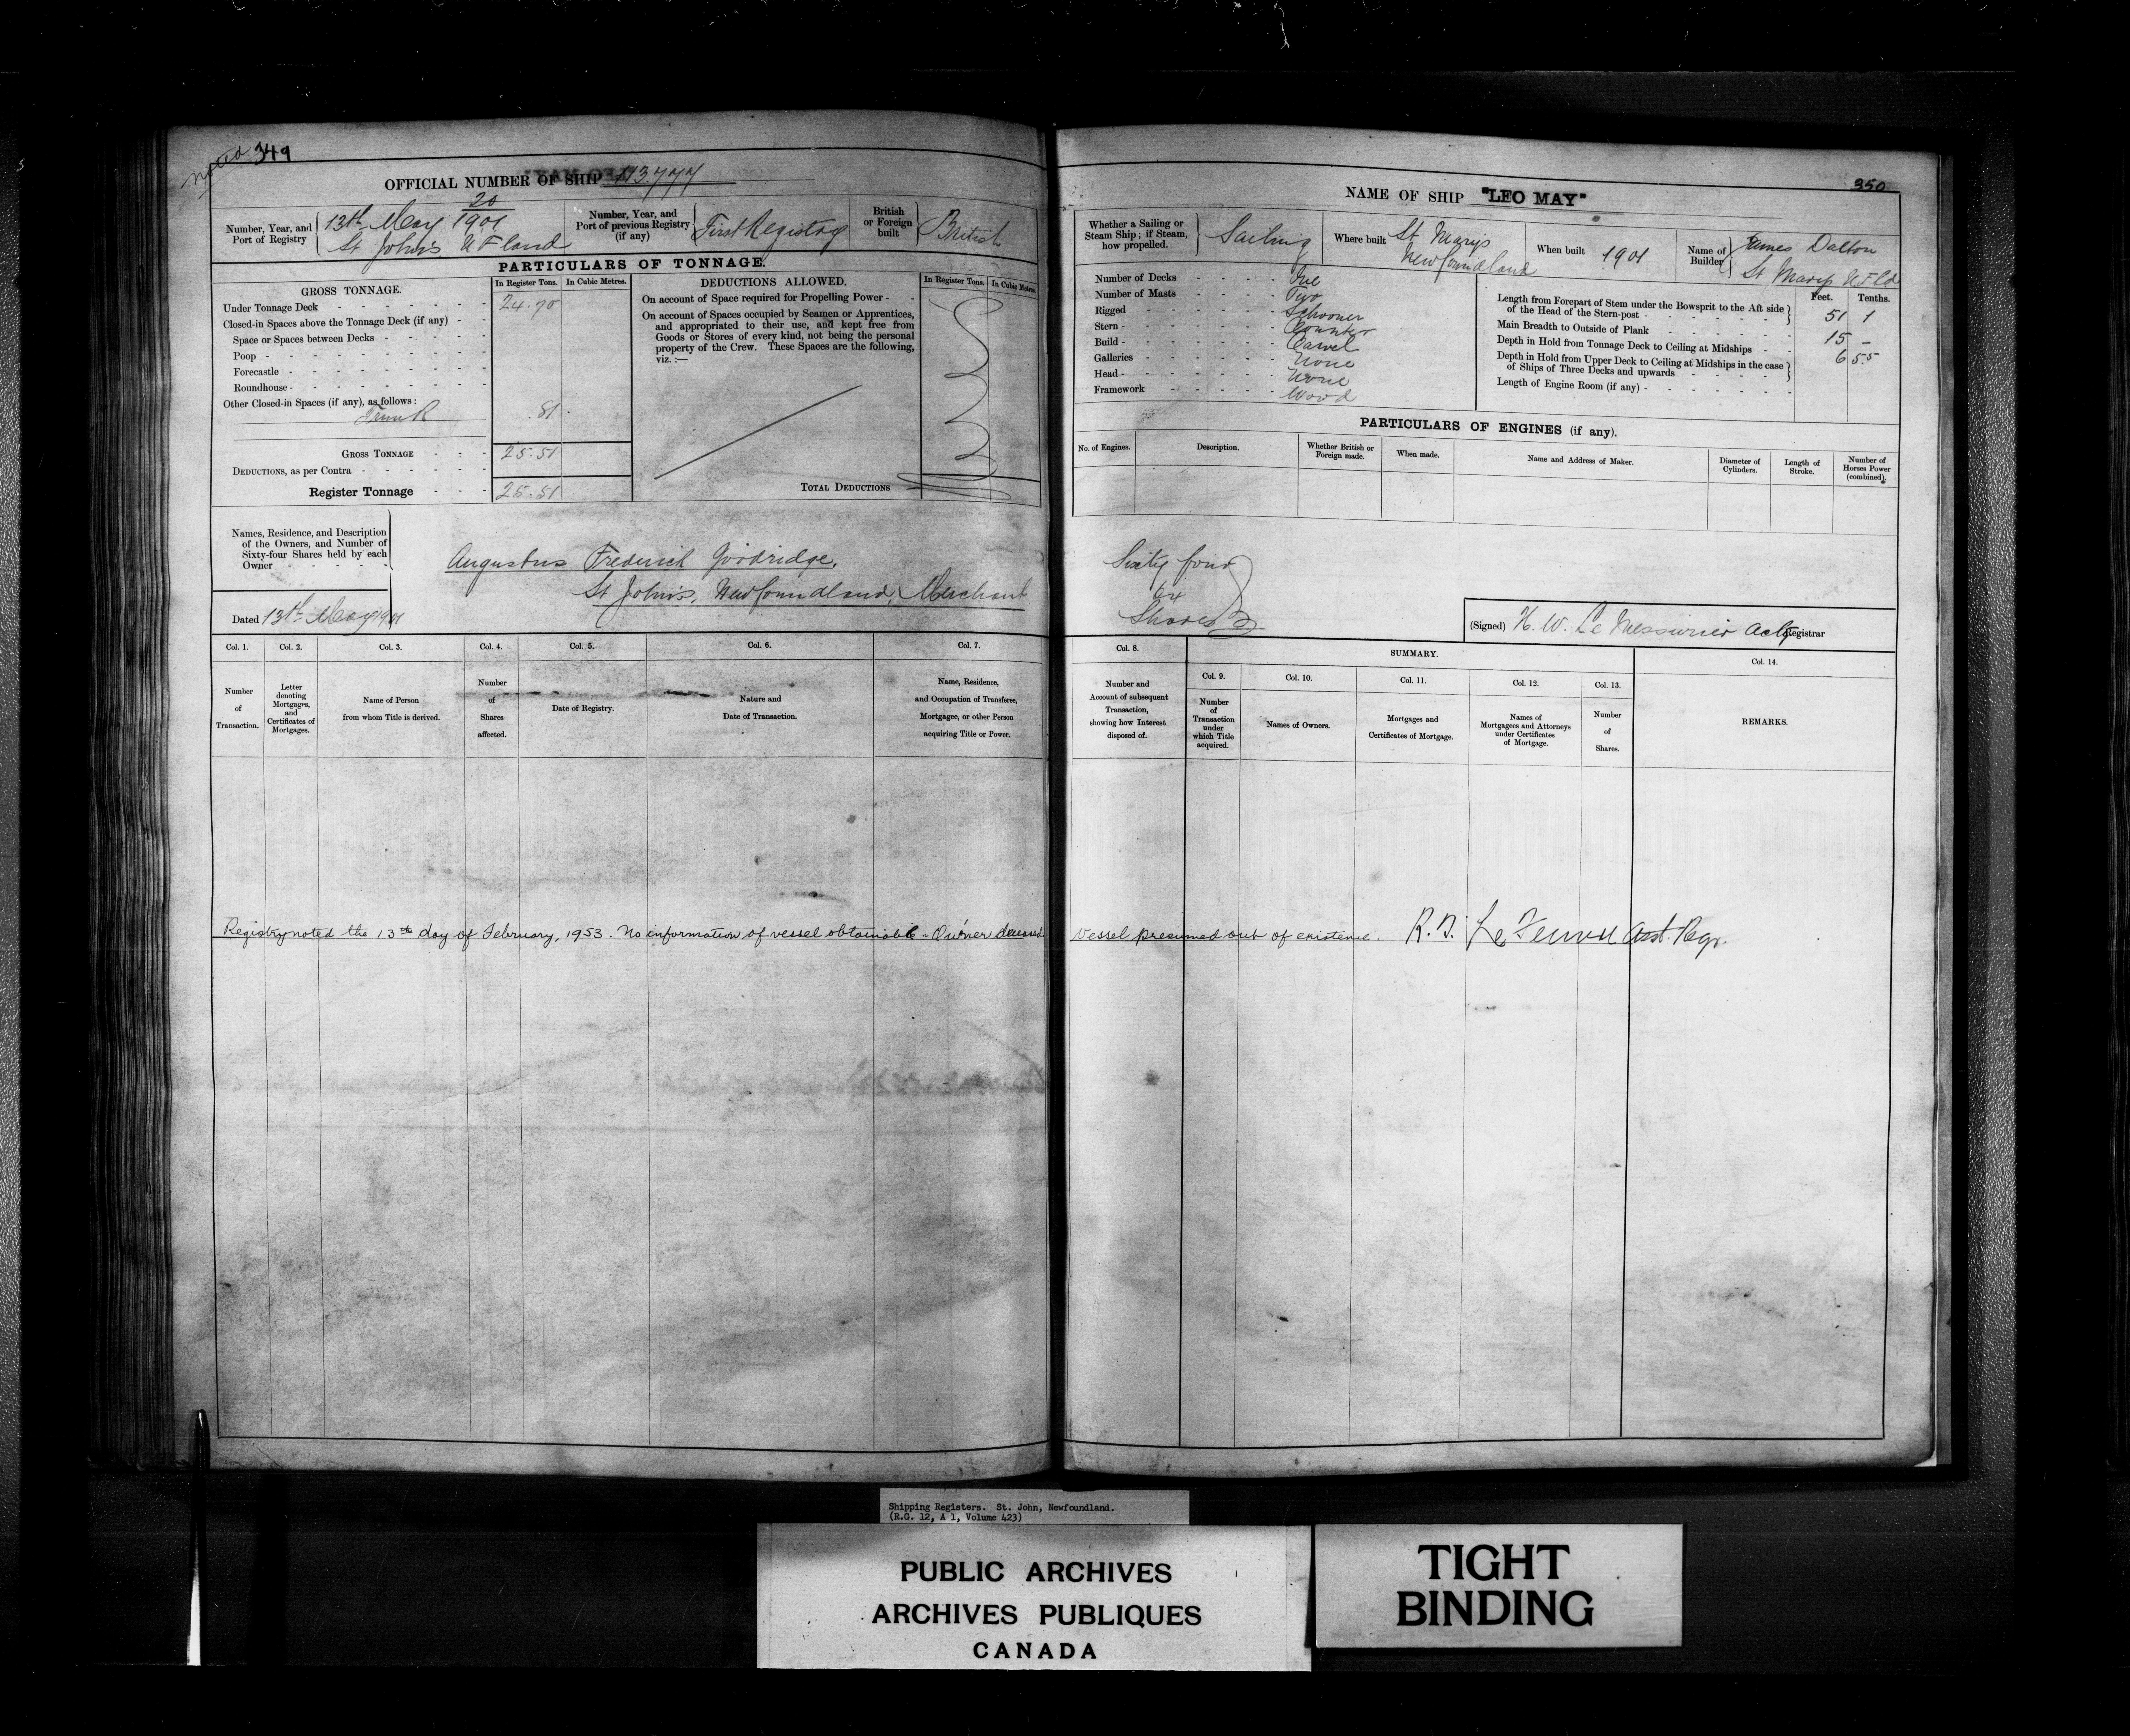 349
OFFICIAL NUMBER OF SHIP 113,777
Number, Year, and Port of Registry
20
13th May 1901
St John's N F land
Number, Year, and Port of previous Registry (if any)
First Registry
British or Foreign built
British
PARTICULARS OF TONNAGE.
GROSS TONNAGE.
In Register Tons. In Cubic Metres.
Under Tonnage Deck 24.70
Closed-in Spaces above the Tonnage Deck (if any)
Space or Spaces between Decks
Poop
Forecastle
Roundhouse
Other Closed-in Spaces (if any), as follows:
Trunk .81
GROSS TONNAGE 25.51
DEDUCTIONS, as per Contra
Register Tonnage 25.51
DEDUCTIONS ALLOWED.
In Register Tons. In Cubic Metres.
On account of Space required for Propelling Power
On account of Spaces occupied by Seamen or Apprentices,
and appropriated to their use, and kept free from
Goods or Stores of every kind, not being the personal
property of the Crew. These Spaces are the following,
viz.:—
TOTAL DEDUCTIONS
Names, Residence, and Description
of the Owners, and Number of
Sixty-four Shares held by each
Owner
Augustus Frederick Goodridge,
St John's, Newfoundland, Merchant
Dated 13th May 1901
Col. 1. Col. 2. Col. 3. Col. 4. Col. 5. Col. 6. Col. 7.
Number of Transaction.
Letter denoting Mortgages, and Certificates of Mortgages.
Name of Person from whom Title is derived.
Number of Shares affected.
Date of Registry.
Nature and Date of Transaction.
Name, Residence, and Occupation of Transferee, Mortgagee, or other Person acquiring Title or Power.
Registry noted the 13th day of February, 1953. No information of vessel obtainable - Owner deceased
350
NAME OF SHIP "LEO MAY"
Whether a Sailing or Steam Ship; if Steam, how propelled.
Sailing
Where built
St Mary's
Newfoundland
When built 1901
Name of Builder
James Dalton
St Marys N F Ld
Number of Decks One
Number of Masts Two
Rigged Schooner
Stern Counter
Build Carvel
Galleries None
Head None
Framework Wood
Feet. Tenths.
Length from Forepart of Stem under the Bowsprit to the Aft side of the Head of the Stern-post 51 1
Main Breadth to Outside of Plank 15 -
Depth in Hold from Tonnage Deck to Ceiling at Midships 6 55
Depth in Hold from Upper Deck to Ceiling at Midships in the case of Ships of Three Decks and upwards
Length of Engine Room (if any)
PARTICULARS OF ENGINES (if any).
No. of Engines.
Description.
Whether British or Foreign made.
When made.
Name and Address of Maker.
Diameter of Cylinders.
Length of Stroke.
Number of Horses Power (combined).
Sixty four
64
Shares
(Signed) H. W. Le Messurier Actg Registrar
Col. 8.
SUMMARY.
Col. 9. Col. 10. Col. 11. Col. 12. Col. 13. Col. 14.
Number and Account of subsequent Transaction, showing how Interest disposed of.
Number of Transaction under which Title acquired.
Names of Owners.
Mortgages and Certificates of Mortgage.
Names of Mortgagees and Attorneys under Certificates of Mortgage.
Number of Shares.
REMARKS.
Vessel presumed out of existence. Asst. Regr.
Shipping Registers. St. John, Newfoundland.
(R.G. 12, A 1, Volume 423)
PUBLIC ARCHIVES
ARCHIVES PUBLIQUES
CANADA
TIGHT
BINDING